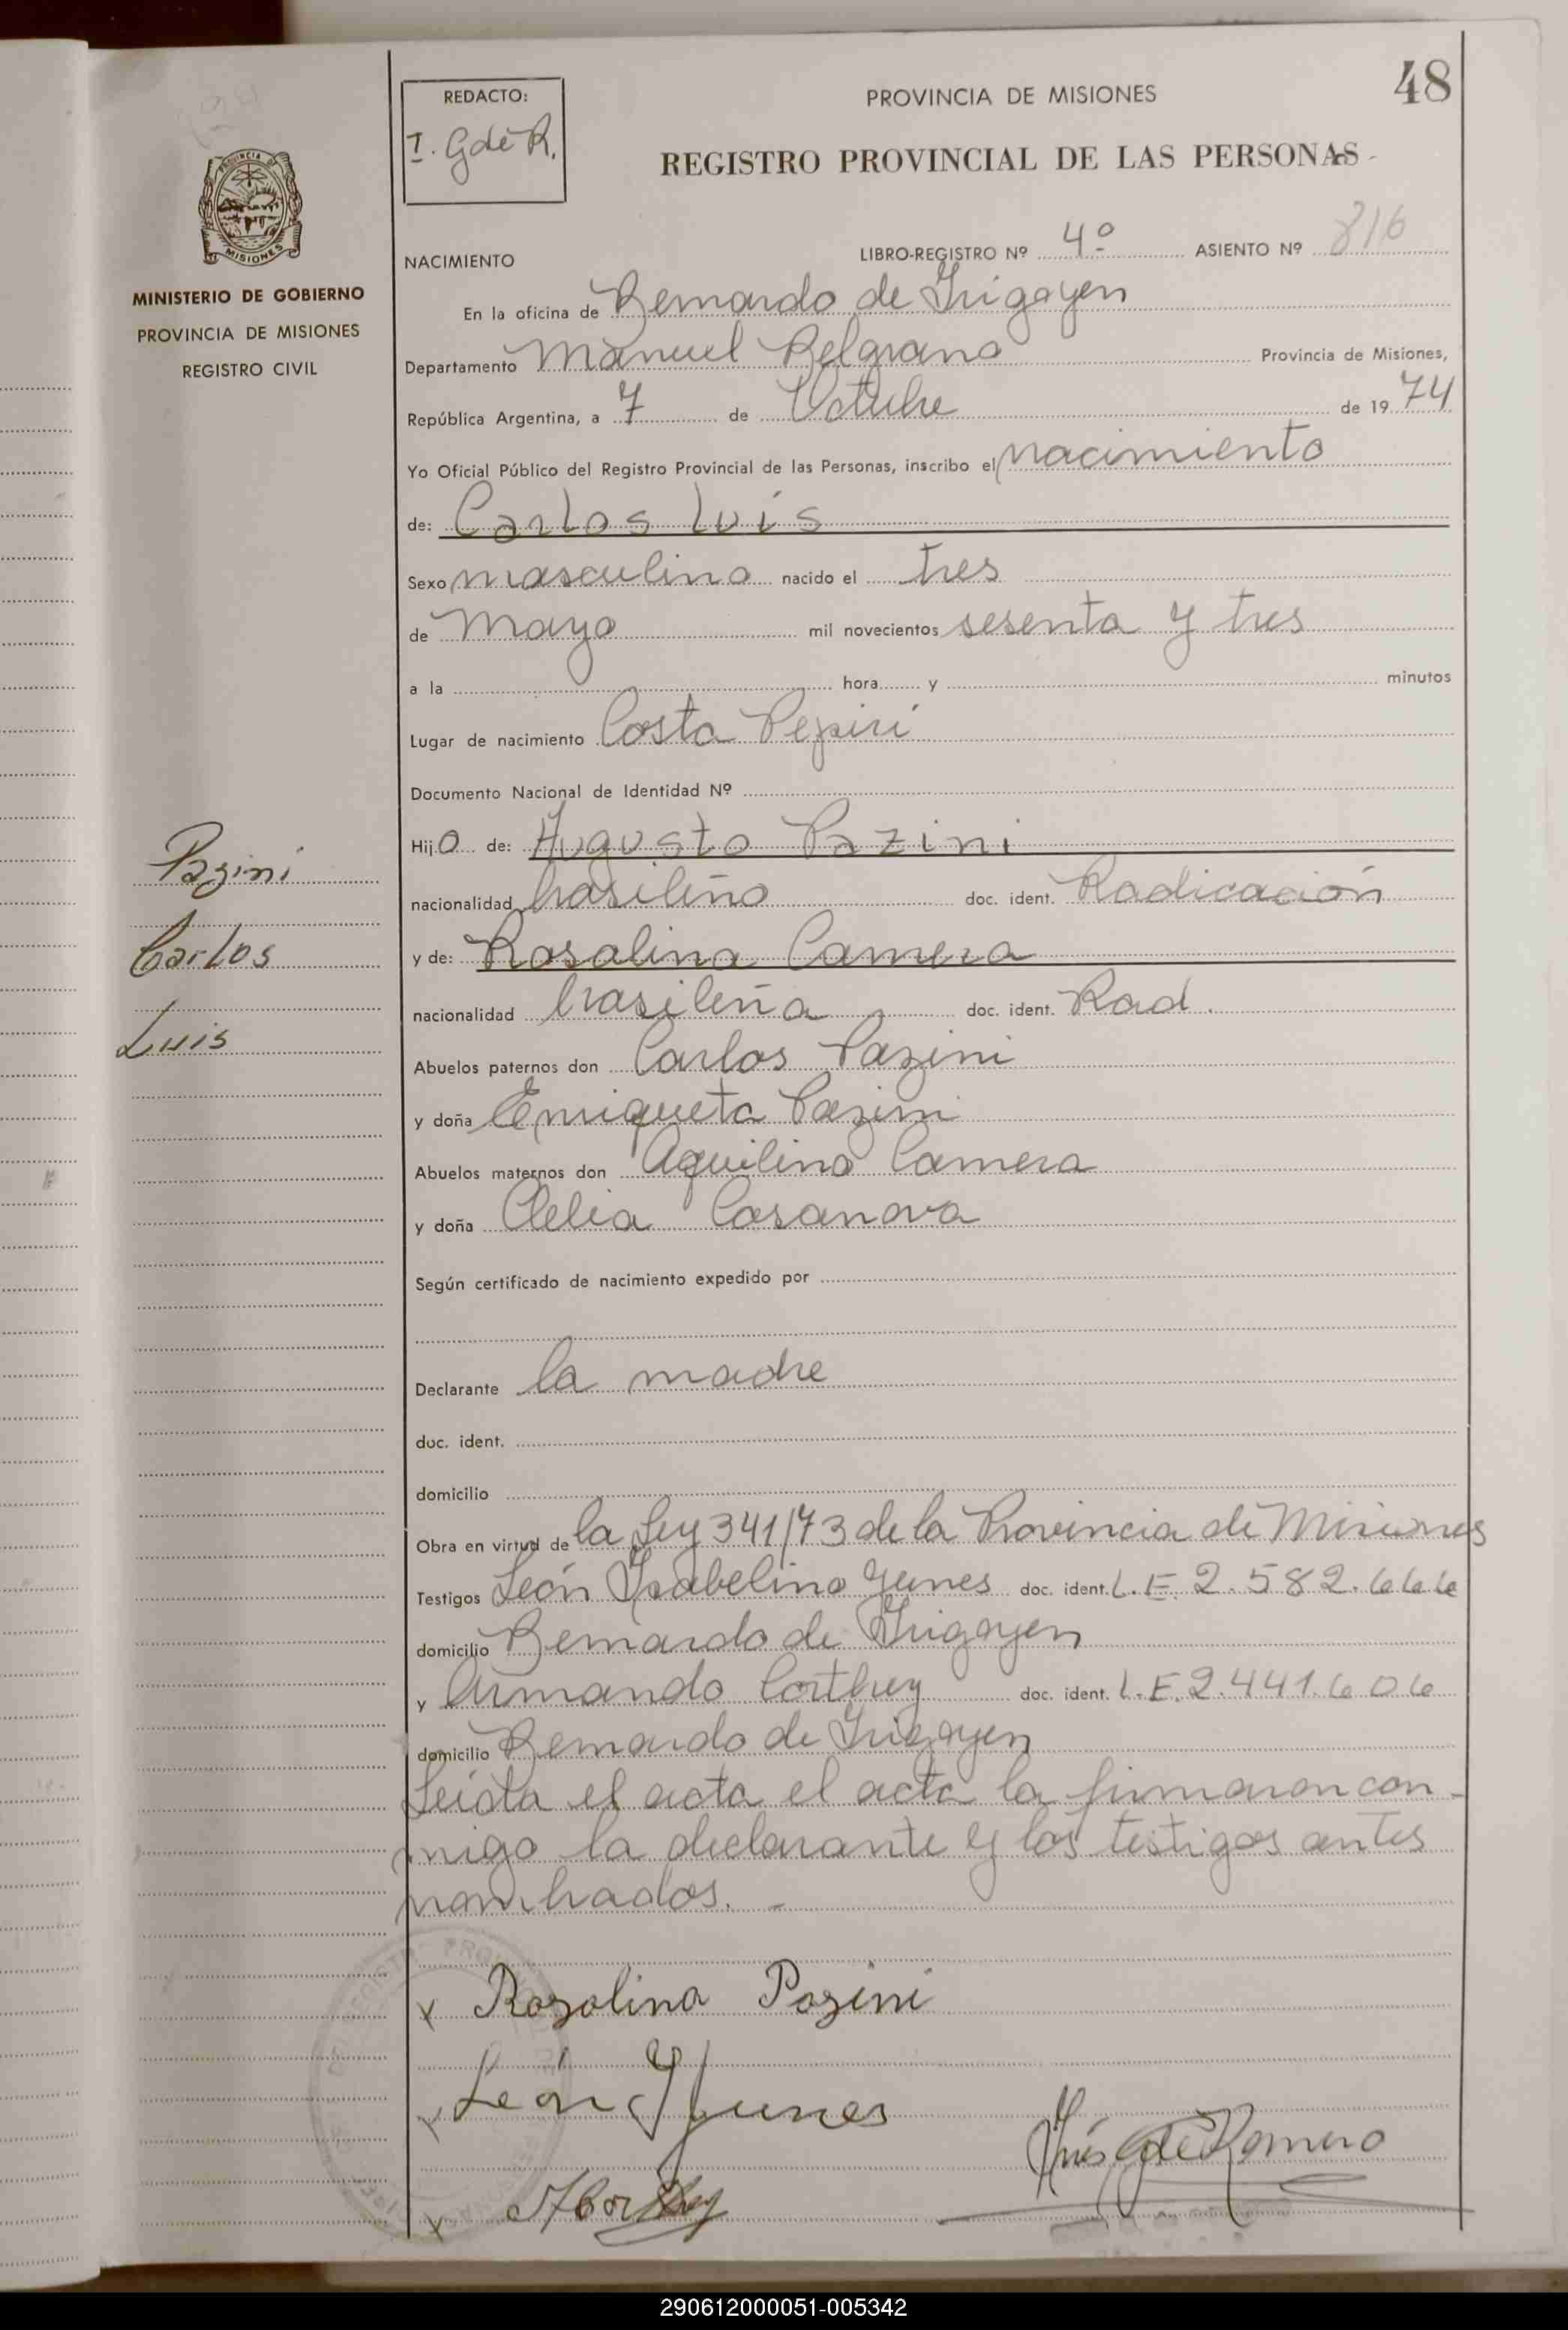 48
REDACTO:
I. G de R.
PROVINCIA DE MISIONES
REGISTRO PROVINCIAL DE LAS PERSONAS
MISIONES
MINISTERIO DE GOBIERNO
PROVINCIA DE MISIONES
REGISTRO CIVIL
NACIMIENTO LIBRO-REGISTRO Nº 4º ASIENTO Nº 816
En la oficina de Bernardo de Irigoyen
Departamento Manuel Belgrano Provincia de Misiones,
República Argentina, a 7 de Octubre de 1974
Yo Oficial Público del Registro Provincial de las Personas, inscribo el nacimiento
de: Carlos Luis
Sexo masculino nacido el tres
de Mayo mil novecientos sesenta y tres
a la hora y minutos
Lugar de nacimiento Costa Pepirí
Documento Nacional de Identidad Nº
Hijo de: Augusto Pazini
nacionalidad brasileño doc. ident. Radicación
y de: Rosalina Camera
nacionalidad brasileña doc. ident. Rad.
Abuelos paternos don Carlos Pazini
y doña Enriqueta Pazini
Abuelos maternos don Aquilino Camera
y doña Clelia Casanova
Según certificado de nacimiento expedido por
Declarante la madre
doc. ident.
domicilio
Obra en virtud de la Ley 341/73 de la Provincia de Misiones
Testigos León Isabelino Yunes doc. ident. L.E. 2.582.666
domicilio Bernardo de Irigoyen
y Armando Corthey doc. ident. L.E. 2.441.606
domicilio Bernardo de Irigoyen
Leida el acta el acta la firmaron con-
migo la declarante y los testigos antes
nombrados. -
Pazini
Carlos
Luis
x Rozalina Pozini
x León I Yunes
Inés G de Romero
x ACorthey
290612000051-005342